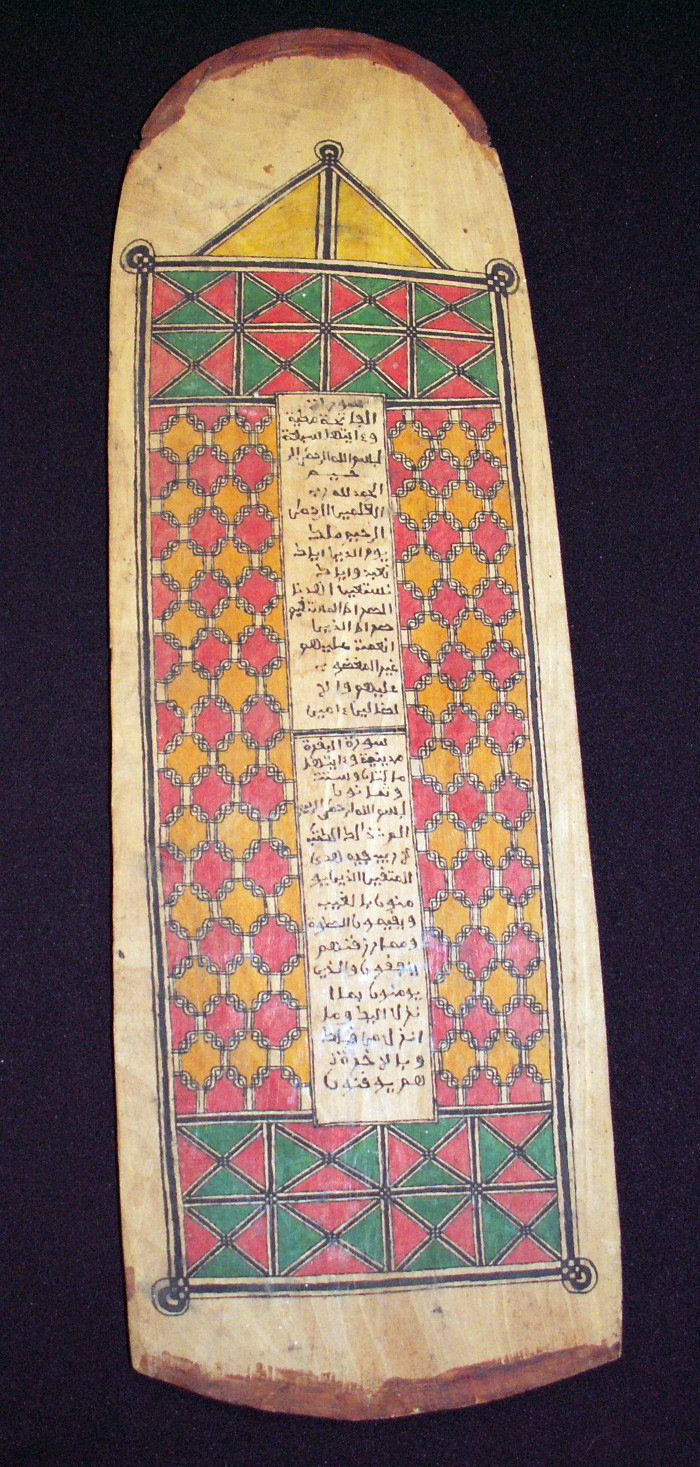 سورات
الفاتحة مكية
وءايتها سبعة
بسم الله الرحمن الر
حيم
الحمد لله رب
العلمين الرحمن
الرحيم ملك
يوم الدين اياك
نعبد واياك
نستعين اهدنا
الصراط المستقيم
صراط الذين
انعمت عليهم
غير المغضوب
عليهم ولا
لضالين ءامين
سورة البقرة
مدينية وءايتها
مائتان وستة
وثمانون
بسم الله الرحمن الر
الم ذالك الكتب
لا ريب فيه هدى
المتقين الذين يو
منون بالغيب
ويقيمون الصلوة
ومما رزقنهم
ينفقون والذين
يومنون بما ا
نزل اليك وما
انزل من قبلك
وبالاخرة
هم يوقنون